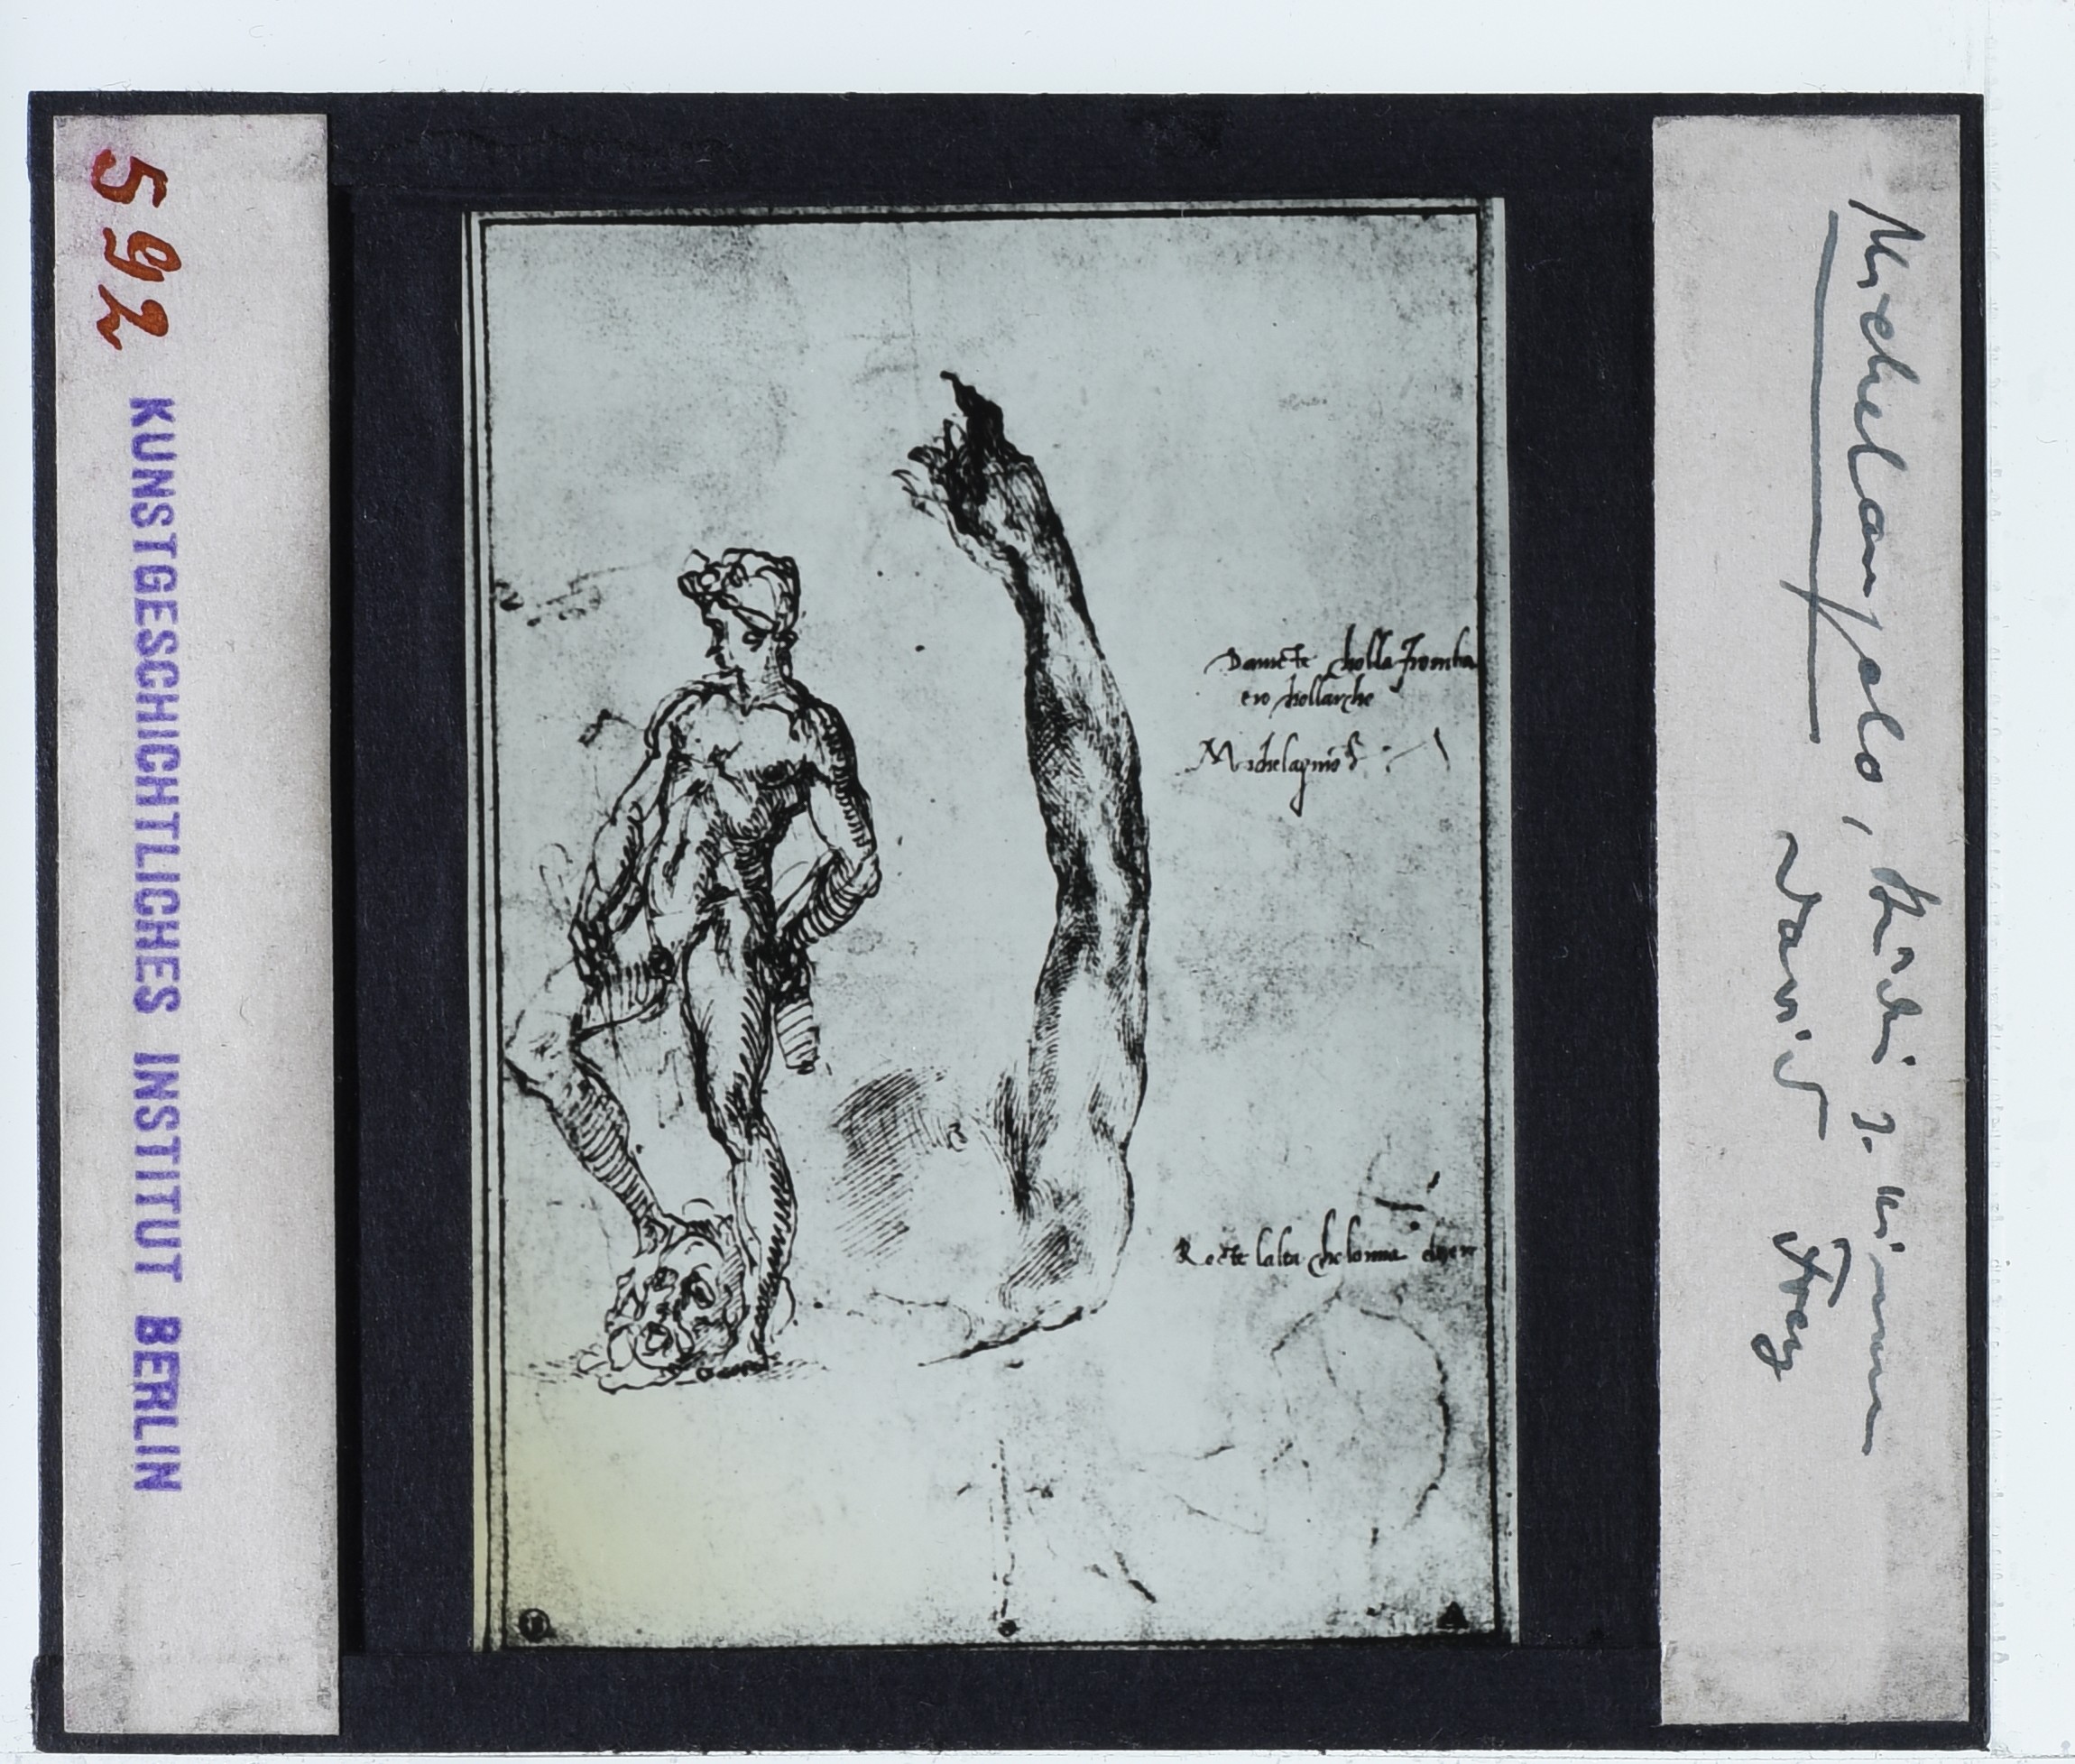 592 KUNSTGESCHICHTLICHES INSTITUT BERLIN
Davicte cholla Fromba
ero chollarcho
Michelagniolo
Rocte lalta cholonna
Michelangelo, Studie z.
David Frey